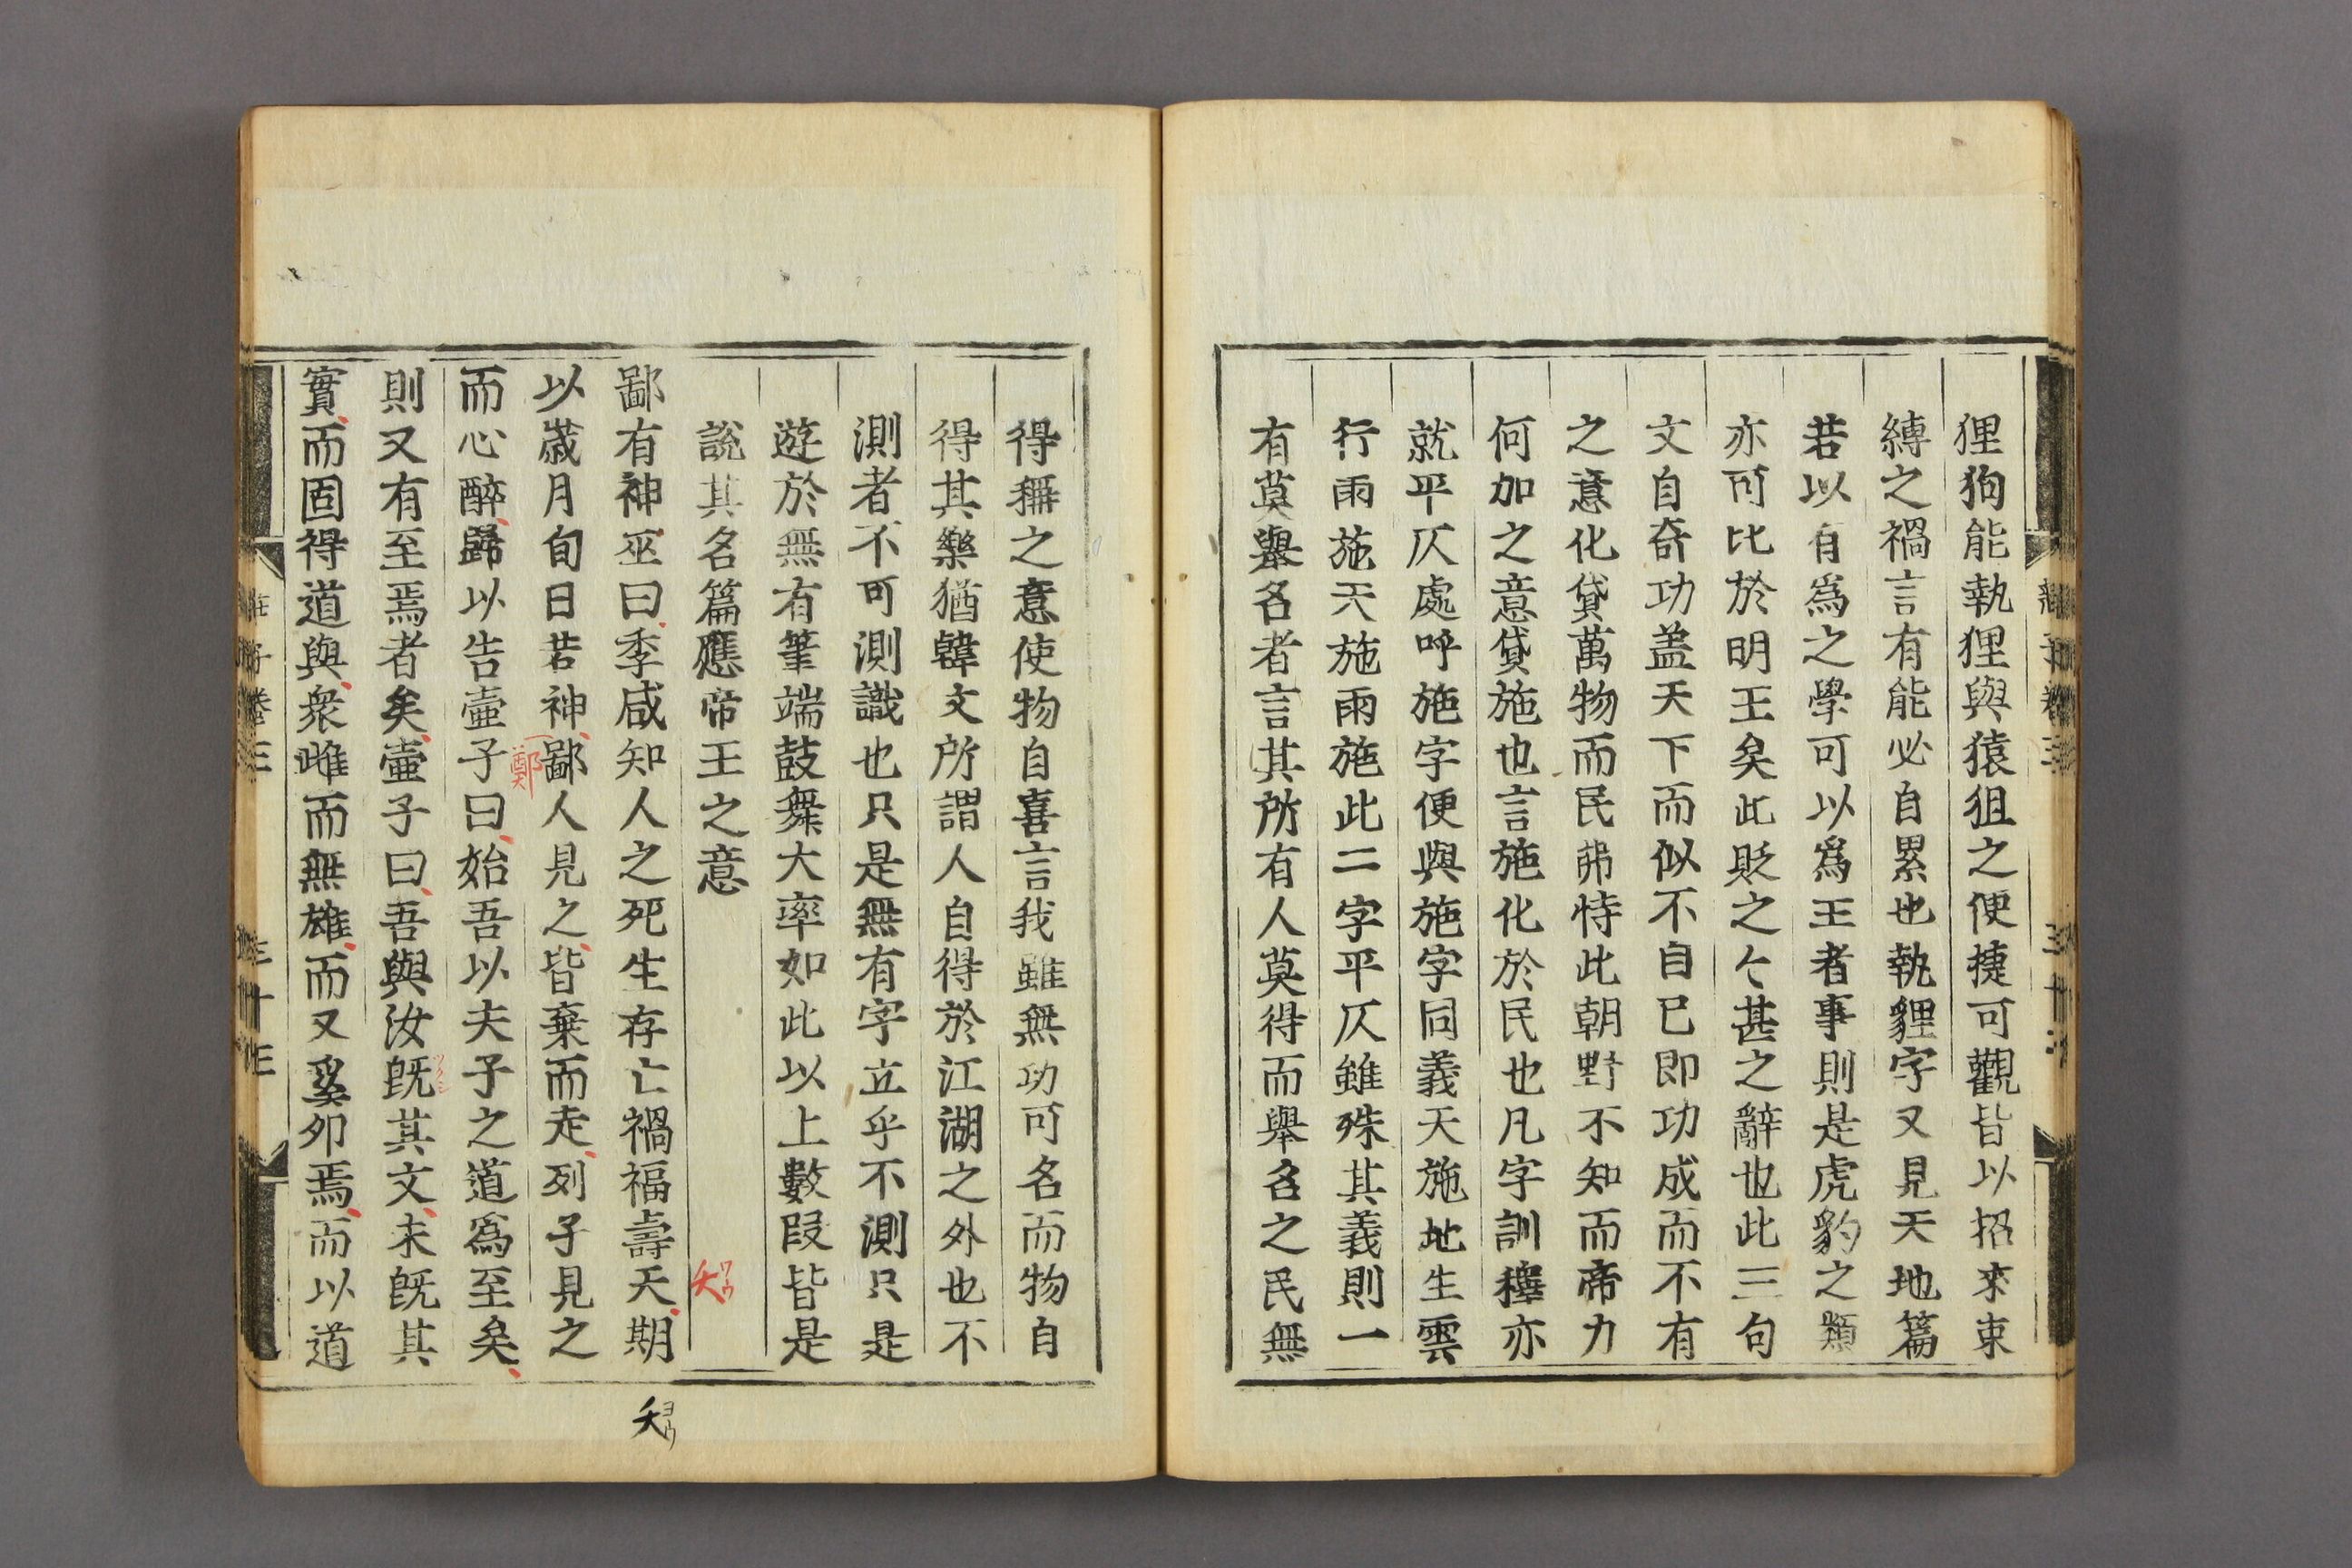 狸狗能執狸與猿狙之便捷可觀皆以招來束
縛之禍言有能必自累也執貍字又見天地篇
若以有爲之學可以爲王者事則是虎豹之類
亦可比於明王矣此貶之亽甚之辭也此三句
文自奇功盖天下而似不自已即功成而不有
之意化貸萬物而民弗恃此朝野不知而帝力
何加之意貸施也言施化於民也凡字訓釋亦
就平仄處呼施字便與施字同義天施地生雲
行雨施天施雨施此二字平仄雖殊其義則一
有莫舉名者言其所有人莫得而舉名之民無
得稱之意使物自喜言我雖無功可名而物自
得其樂猶韓文所謂人自得於江湖之外也不
測者不可測識也只是無有字立乎不測只是
遊於無有筆端鼓舞大率如此以上數段皆是
說其名篇應帝王之意
夭ワウ
鄙有神巫曰季咸知人之死生存亡禍福壽天期
夭ヨウ
以歳月旬日若神鄙人見之皆棄而走列子見之
鄭
而心醉歸以告壷子曰始吾以夫子之道爲至矣
則又有至焉者矣壷子曰吾與汝旣其文未旣其
ツクシ
實而固得道與衆雌而無雄而又奚卵焉而以道
莊子卷三
三十三